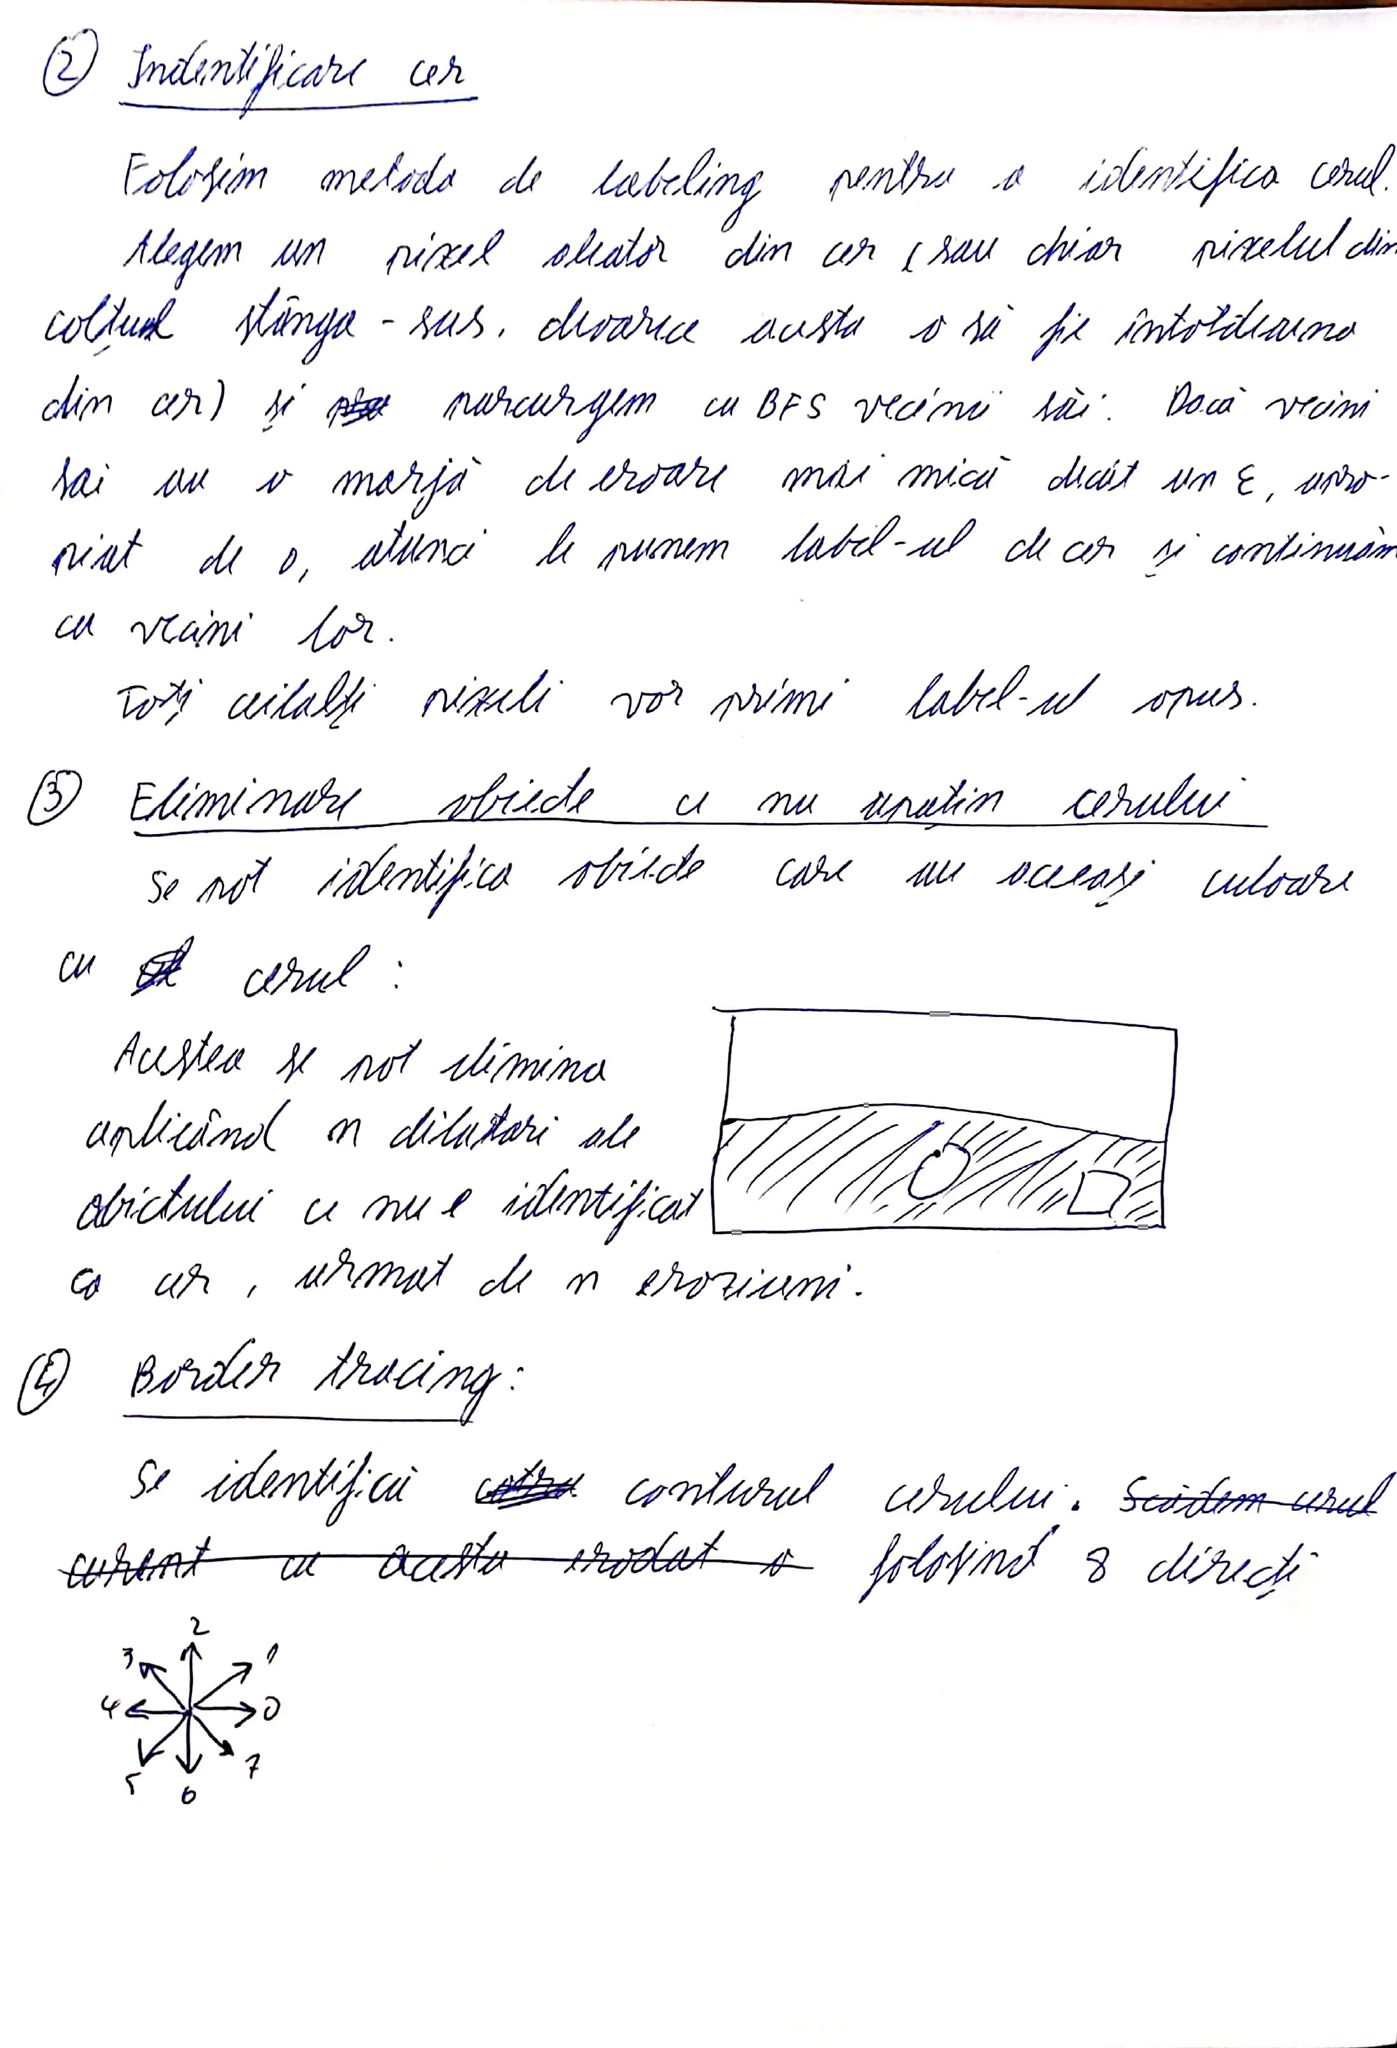 ② Indentificare cer
Folosim metoda de labeling pentru a identifica cerul.
Alegem un pixel aleator din cer (sau chiar pixelul din
colțul stânga-sus, deoarece acesta o să fie întotdeauna
din cer) și parcurgem cu BFS vecinii săi. Dacă vecini
săi au o marjă de eroare mai mică decât un ε, apro-
piat de 0, atunci le punem label-ul de cer și continuăm
cu vecini lor.
Toți ceilalți pixeli vor primi label-ul opus.
③ Eliminare obiecte ce nu aparțin cerului
Se pot identifica obiecte care au aceeași culoare
cu cerul :
Acestea se pot elimina
aplicând n dilatări ale
obiectului ce nu e identificat
ca cer, urmat de n eroziuni.
④ Border tracing:
Se identifică conturul cerului. Scădem cerul
curent cu acesta erodat a folosind 8 direcți
2
3 1
4 0
5 7
6